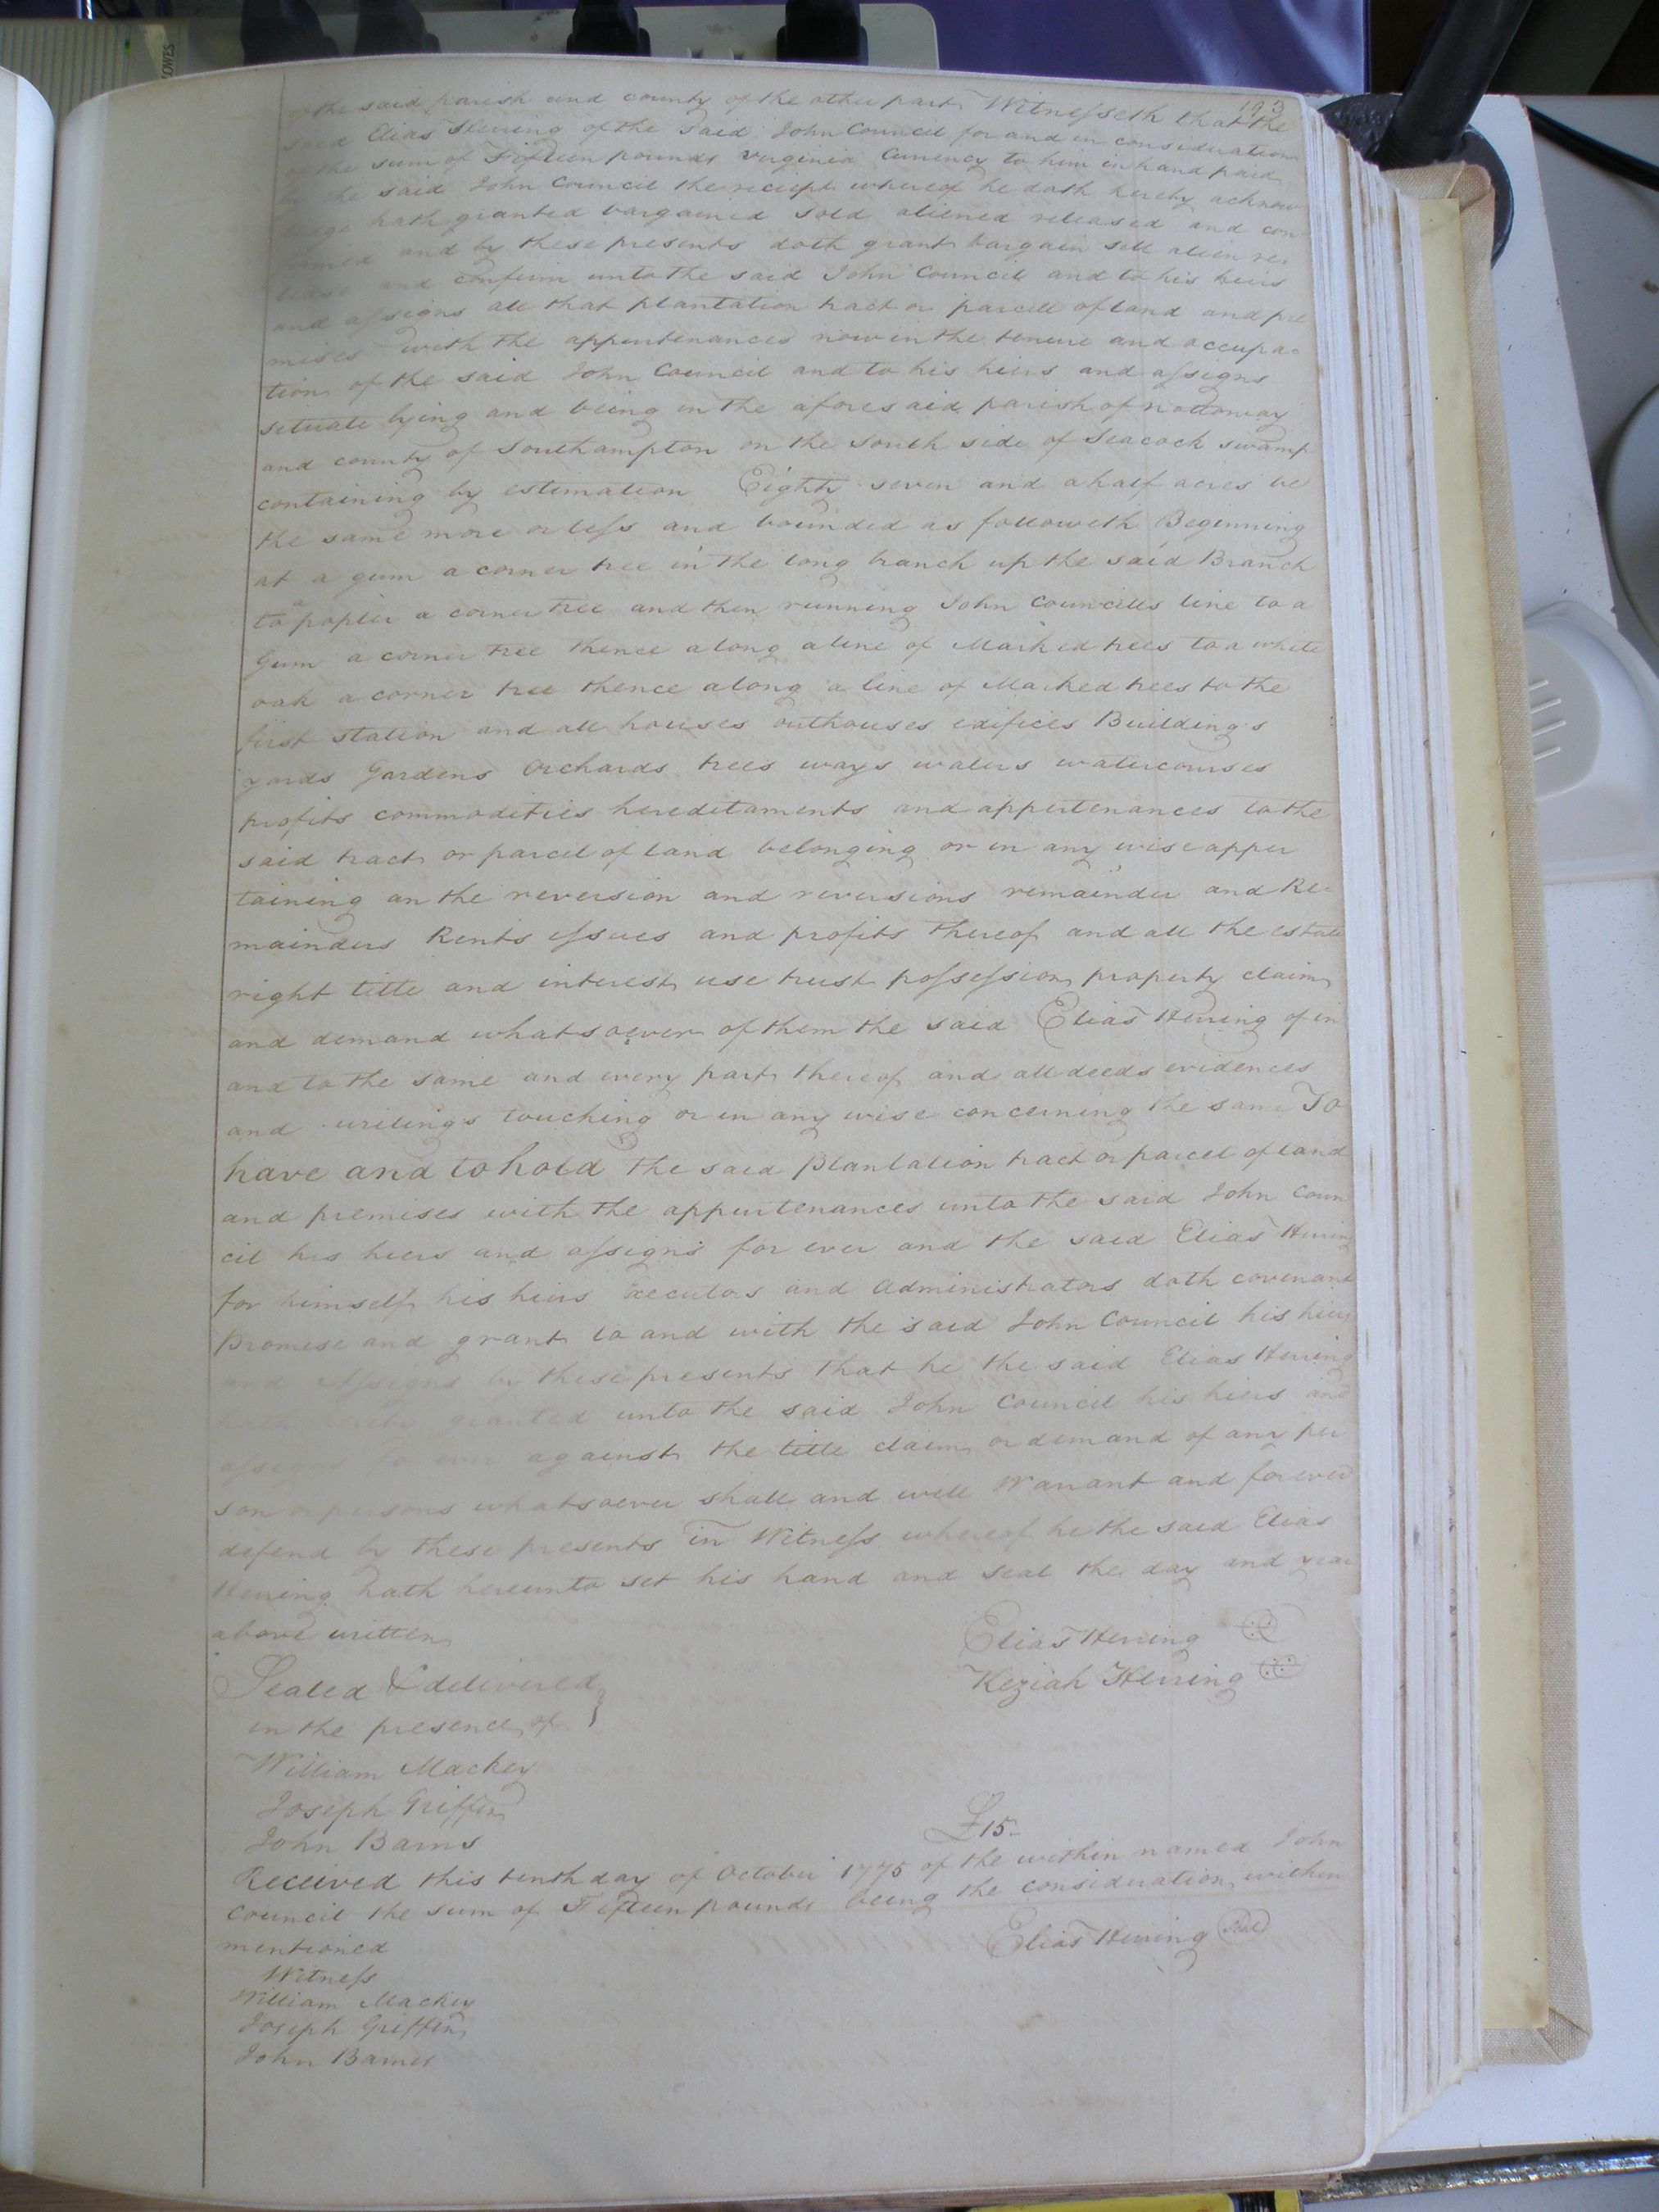 193
of the said parish and county of the other part Witnesseth that the
said Elias Herring of the said John Council for and in consideration
of the sum of Fifteen pounds Virginia Currency to him in hand paid
by the said John Council the reciept whereof he doth hereby acknow
ledge hath granted bargained sold aliened released and con
firmed and by these presents doth grant bargain sell alien re
lease and confirm unto the said John Council and to his heirs
and assigns all that plantation tract or parcell of land and pre
mises with the appurtenances now in the tenure and occupa=
tion of the said John Council and to his hiers and assigns
setuate lying and being in the aforesaid parish of nottoway
and county of Southampton on the south side of Seacock swamp
containing by estimation Eighty seven and a half acres be
the same more or less and bounded as followeth Beginning
at a gum a corner tree in the long branch up the said Branch
to a poplar a corner tree and then running John Councills line to a
Gum a corner tree thence along a line of Marked trees to a white
oak a corner tree thence along a line of Marked trees to the
first station and all houses outhouses edifices Buildings
yards Gardens Orchards trees ways waters watercourses
profits commodities hereditaments and appertenances to the
said tract or parcel of land belonging or in any wise apper
taining an the reversion and reversions remainder and Re=
mainders Rents issues and profits thereof and all the estate
right title and interest use trust possession property claim
and demand whatsoever of them the said Elias Herring of in
and to the same and every part thereof and all deeds evidences
and writings touching or in any wise concerning the same To
have and to hold the said plantation tract or parcel of land
and premises with the appurtenances unto the said John Coun
cil his hiers and assigns for ever and the said Elias Herring
for himself his hiers executors and Administrators doth covenant
Promise and grant to and with the said John Council his hiers
and Assigns by these presents that he the said Elias Herring
hath granted unto the said John Council his hiers and
assigns for ever against the title claim or demand of any per
son or persons whatsoever shall and will Warrant and forever
defend by these presents in Witness whereof he the said Elias
Herring hath hereunto set his hand and seal the day and year
above written
Elias Herring
Sealed & delivered
Keziah Herring
in the presence of
William Mackey
Joseph Griffin
£15-
John Barns
Received this tenth day of October 1775 of the within named John
Council the sum of Fifteen pounds being the consideration within
mentioned
Elias Herring Seal
Witness
William Mackey
Joseph Griffin
John Barnes
LOWES